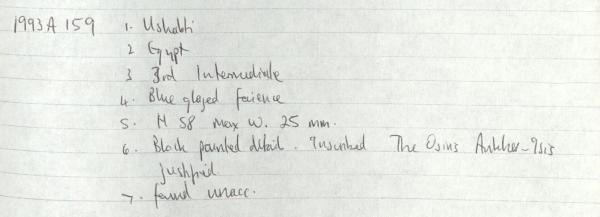 1993 A 159 1. Ushabti
2 Egypt
3 3rd Intermediate
4. Blue glazed faience
5. H 58 Max W. 25 mm.
6. Black painted detail. Inscribed The Osiris Ankhes-Isis
justified
7. found unacc.